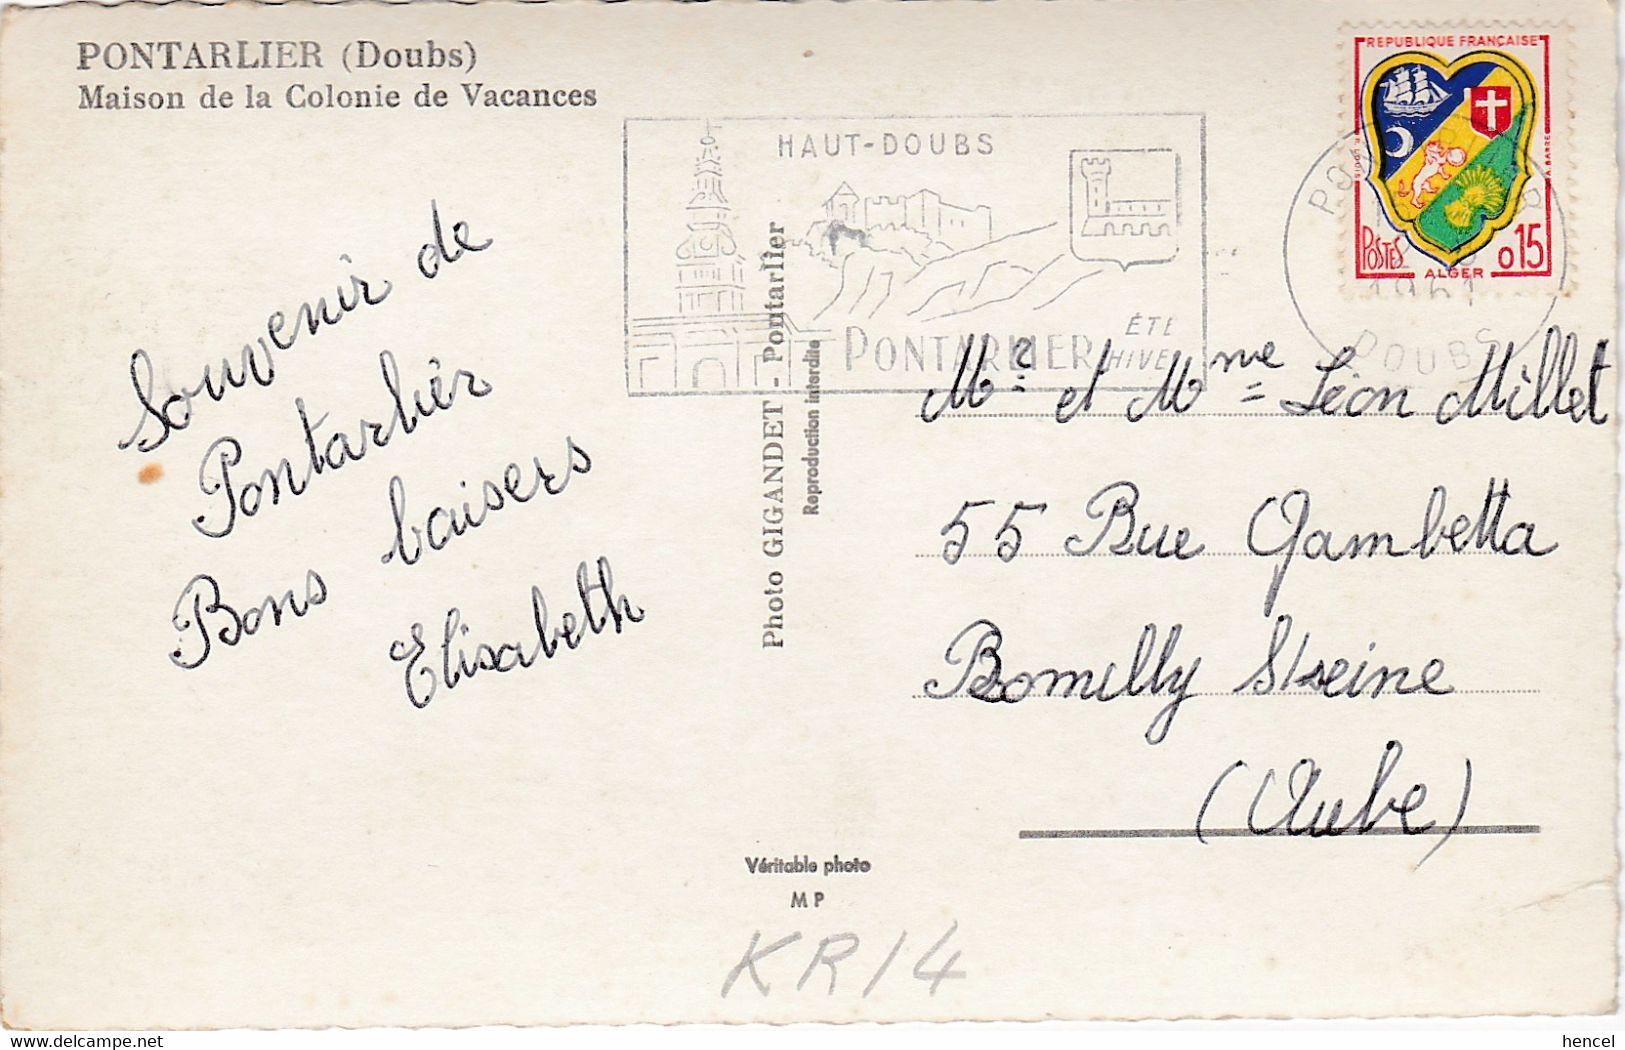 PONTARLIER (Doubs)
Maison de la Colonie de Vacances
Souvenir de
Pontarlier
Bons baisers
Elisabeth
HAUT-DOUBS
PONTARLIER
ÉTÉ
HIVER
Photo GIGANDET - Pontarlier
Reproduction interdite
REPUBLIQUE FRANÇAISE
POSTES
ALGER
0,15
1961
DOUBS
Mr et Mme Léon Millet
55 Rue Gambetta
Romilly S/seine
(Aube)
Véritable photo
M P
KR14
hencel